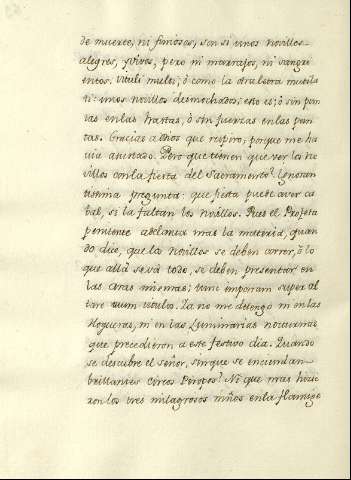 de muerte, ni furiosos, son si unos novillos
alegres, y vivos, pero ni marrajos, ni sangri
entos. Vituli muti; ò como la otra letra mutila
ti: unos novillos desmochados; esto es; ò sin pun
tas en las hastas, ò sin fuerzas en las pun
tas. Gracias a Dios que respiro, porque me ha
via asustado. Pero que tienen que ver los no
villos con la fiesta del Sacramento? Ignoran
tissima pregunta: que fiesta puede aver ca
bal, si la faltan los novillos. Pues el Propheta
penitente adelanta mas la materia, quan
do dice, que los novillos se deben correr, ò lo
que allà se và todo, se deben presentar en
las aras mismas; tunc imponam super al
tare tuum vitulos. Ya no me detengo ni en las
Hogueras, ni en las Luminarias nocturnas
que precedieron a este festivo dia. Quando
se descubre el señor, sin que se enciendan
brillantes Piropos? Ni que mas hicie
ron los tres milagrosos niños en la flamige